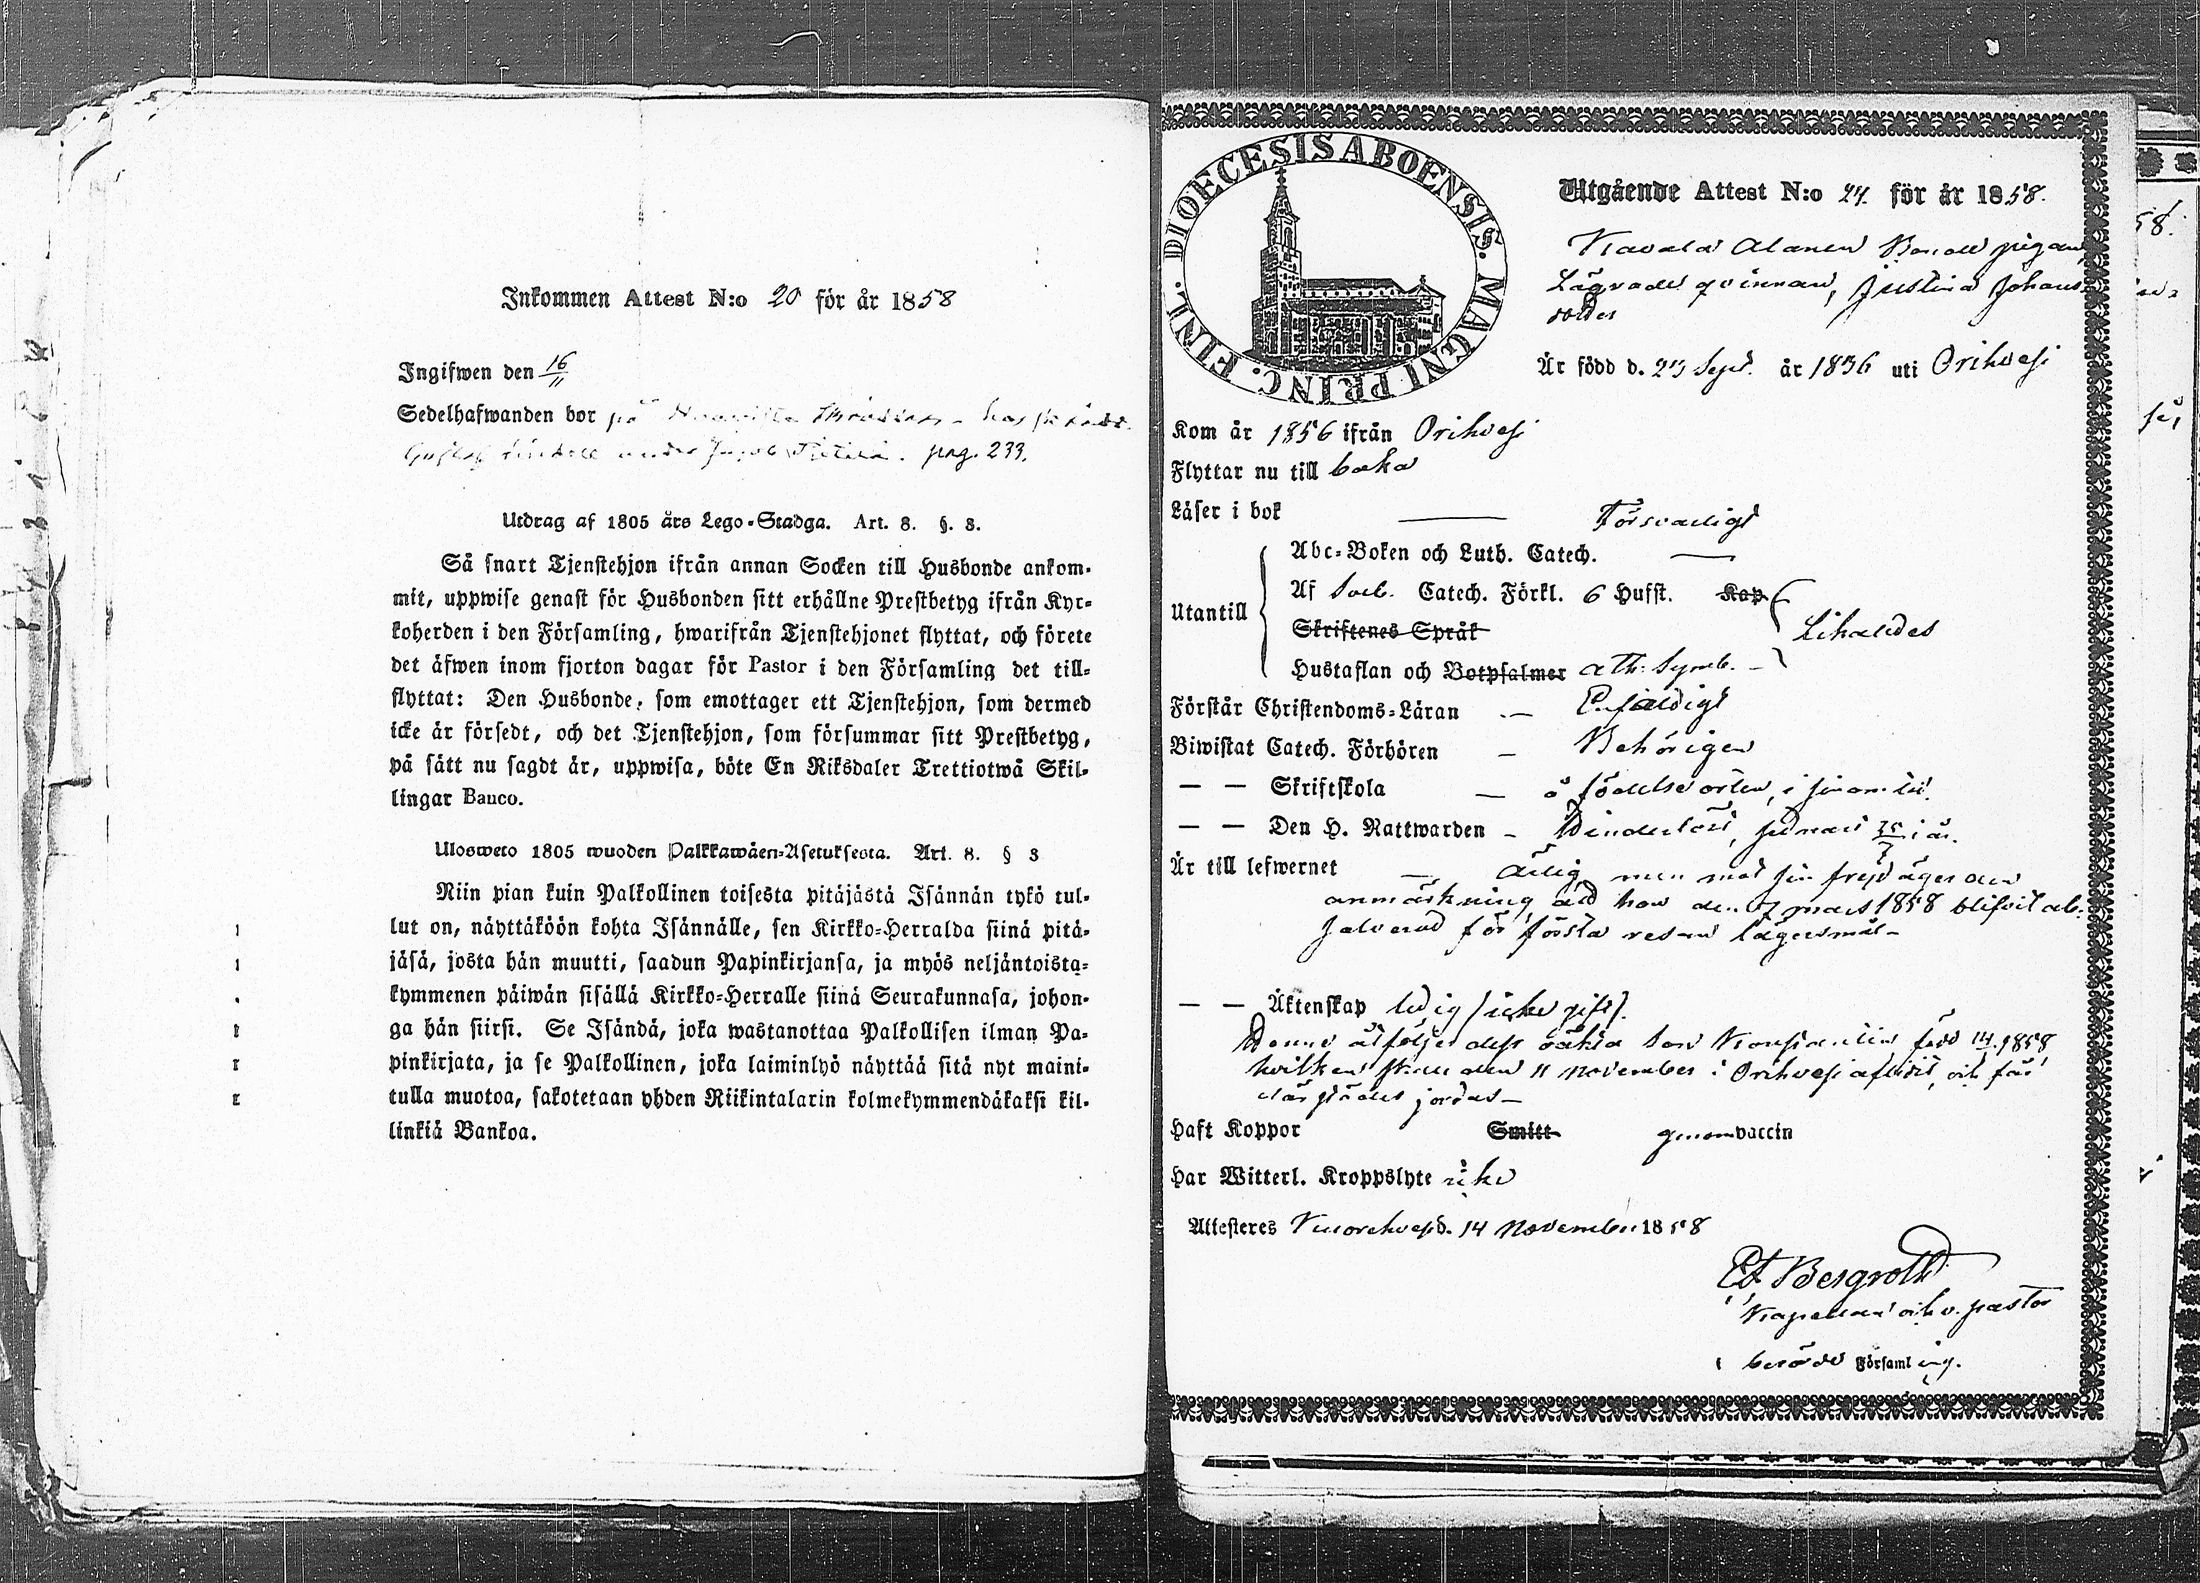 Inkommen Attest N:o 20 för år 1858
Ingifwen den 16/11
Sedelhafwanden bor på
under pag. 233.
Utdrag af 1805 års Lego-Stadga. Art. 8. §. 3.
Så snart Tjenstehjon ifrån annan Socken till Husbonde ankom-
mit, uppwise genast för Husbonden sitt erhållne Prestbetyg ifrån Kyr-
koherden i den Församling, hwarifrån Tjenstehjonet flyttat, och förete
det äfwen inom fjorton dagar för Pastor i den Församling det till-
flyttat: Den Husbonde, som emottager ett Tjenstehjon, som dermed
icke är försedt, och det Tjenstehjon, som försummar sitt Prestbetyg,
på sätt nu sagdt är, uppwisa, böte En Riksdaler Trettiotwå Skil-
lingar Banco.
Ulosweto 1805 wuoden Palkkawäen-Asetuksesta. Art. 8. § 3
Niin pian kuin Palkollinen toisesta pitäjästä Isännän tykö tul-
lut on, näyttäköön kohta Isännälle, sen Kirkko-Herralda siinä pitä-
jäsä, josta hän muutti, saadun Papinkirjansa, ja myös neljäntoista-
kymmenen päiwän sisällä Kirkko-Herralle siinä Seurakunnasa, johon-
ga hän siirsi. Se Isändä, joka wastanottaa Palkollisen ilman Pa-
pinkirjata, ja se Palkollinen, joka laiminlyö näyttää sitä nyt maini-
tulla muotoa, sakotetaan yhden Riikintalarin kolmekymmendäkaksi kil-
linkiä Bankoa.
DIOECESIS ABOENSIS. MAGNI PRINC. FINL.
Utgående Attest N:o 24. för år 1858.
Kavala Alanen Bonde pigan
Lägrade qvinnan, Justina Johans-
dotter
Är född d. 23 Sept. år 1836 uti Orihvesi
Kom år 1856 ifrån Orihvesi
Flyttar nu till
Läser i bok — Försvarligt
Abc-Boken och Luth. Catech. —
Utantill
Af Sveb. Catech. Förkl. 6 Hufst. Kap
Skriftenes Språk
Likaledes
Hustaflan och Botpsalmer Ath: Symb. —
Förstår Christendoms-Läran — Enfaldigt
Biwistat Catech. Förhören — Behörigen
— — Skriftskola — å födelseorten, i sin tid.
— — Den H. Nattwarden — Derstädes, sednast 25/7 i år.
Är till lefwernet — ärlig men mot sin frejd äger den
anmärkning att hon den 7 mars 1858 blifvit ab-
solverad för första resan lägersmål —
— — Äktenskap ledig (icke gift).
Denne åtföljer dess oäkta son Konstantin född 14. 1858
hvilken skall den 11 November i Orihvesi aflidit, och får
därstädes jordas —
Haft Koppor Smitt genom vaccin
Har Witterl. Kroppslyte icke
Attesteres Kuorehvesi d. 14 November 1858
Bergroth
Kapellan och v. pastor
i berörde Församling.